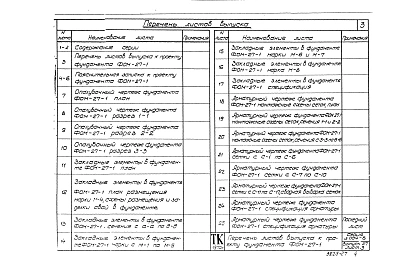 Перечень листов выпуска
3
N листа
Наименование листа
Примечания
1-2
Содержание серии
3
Перечень листов выпуска к проекту
фундамента ФОМ-27-1
4-6
Пояснительная записка к проекту
фундамента ФОМ-27-1
7
Опалубочный чертеж фундамента
ФОМ-27-1 план
8
Опалубочный чертеж фундамента
ФОМ-27-1 разрез 1-1
9
Опалубочный чертеж фундамента
ФОМ-27-1 разрез 2-2
10
Опалубочный чертеж фундамента
ФОМ-27-1 разрез 3-3
11
Закладные элементы в фундамен-
те ФОМ-27-1 план
12
Закладные элементы в фундамен-
те ФОМ-27-1 план размещения
марки М-4, схемы размещения и за-
делки свай в фундаменте.
13
Закладные элементы в фундаменте
ФОМ-27-1. сечения с а-а по
14
Закладные элементы в фундамен-
те ФОМ-27-1 марки с М-1 по М-5
N листа
Наименование листа
Примечания
15
Закладные элементы в фундаменте
ФОМ-27-1 марки М-6 и М-7
16
Закладные элементы в фундаменте
ФОМ-27-1 марка М-8
17
Закладные элементы в фундаменте
ФОМ-27-1 спецификация
18
Арматурный чертеж фундамента
ФОМ-27-1 монтажные схемы сеток, план
19
Арматурный чертеж фундамента ФОМ-27-1
монтажные схемы сеток, сечения 1-1 и 2-2
20
Арматурный чертеж фундамента ФОМ-27-1
монтажные схемы сеток, сечения
21
Арматурный чертеж фундамента ФОМ-27-1
сетки с С-1 по С-6
22
Арматурный чертеж фундамента
ФОМ-27-1 сетки с С-7 по С-10
23
Арматурный чертеж фундамента ФОМ-27-1
24
Арматурный чертеж фундамента
ФОМ-27-1 спецификация арматуры
25
Арматурный чертеж фундамента
ФОМ-27-1 спецификация арматуры
Последний лист
ТК
Перечень листов выпуска к про-
екту фундамента ФОМ-27-1